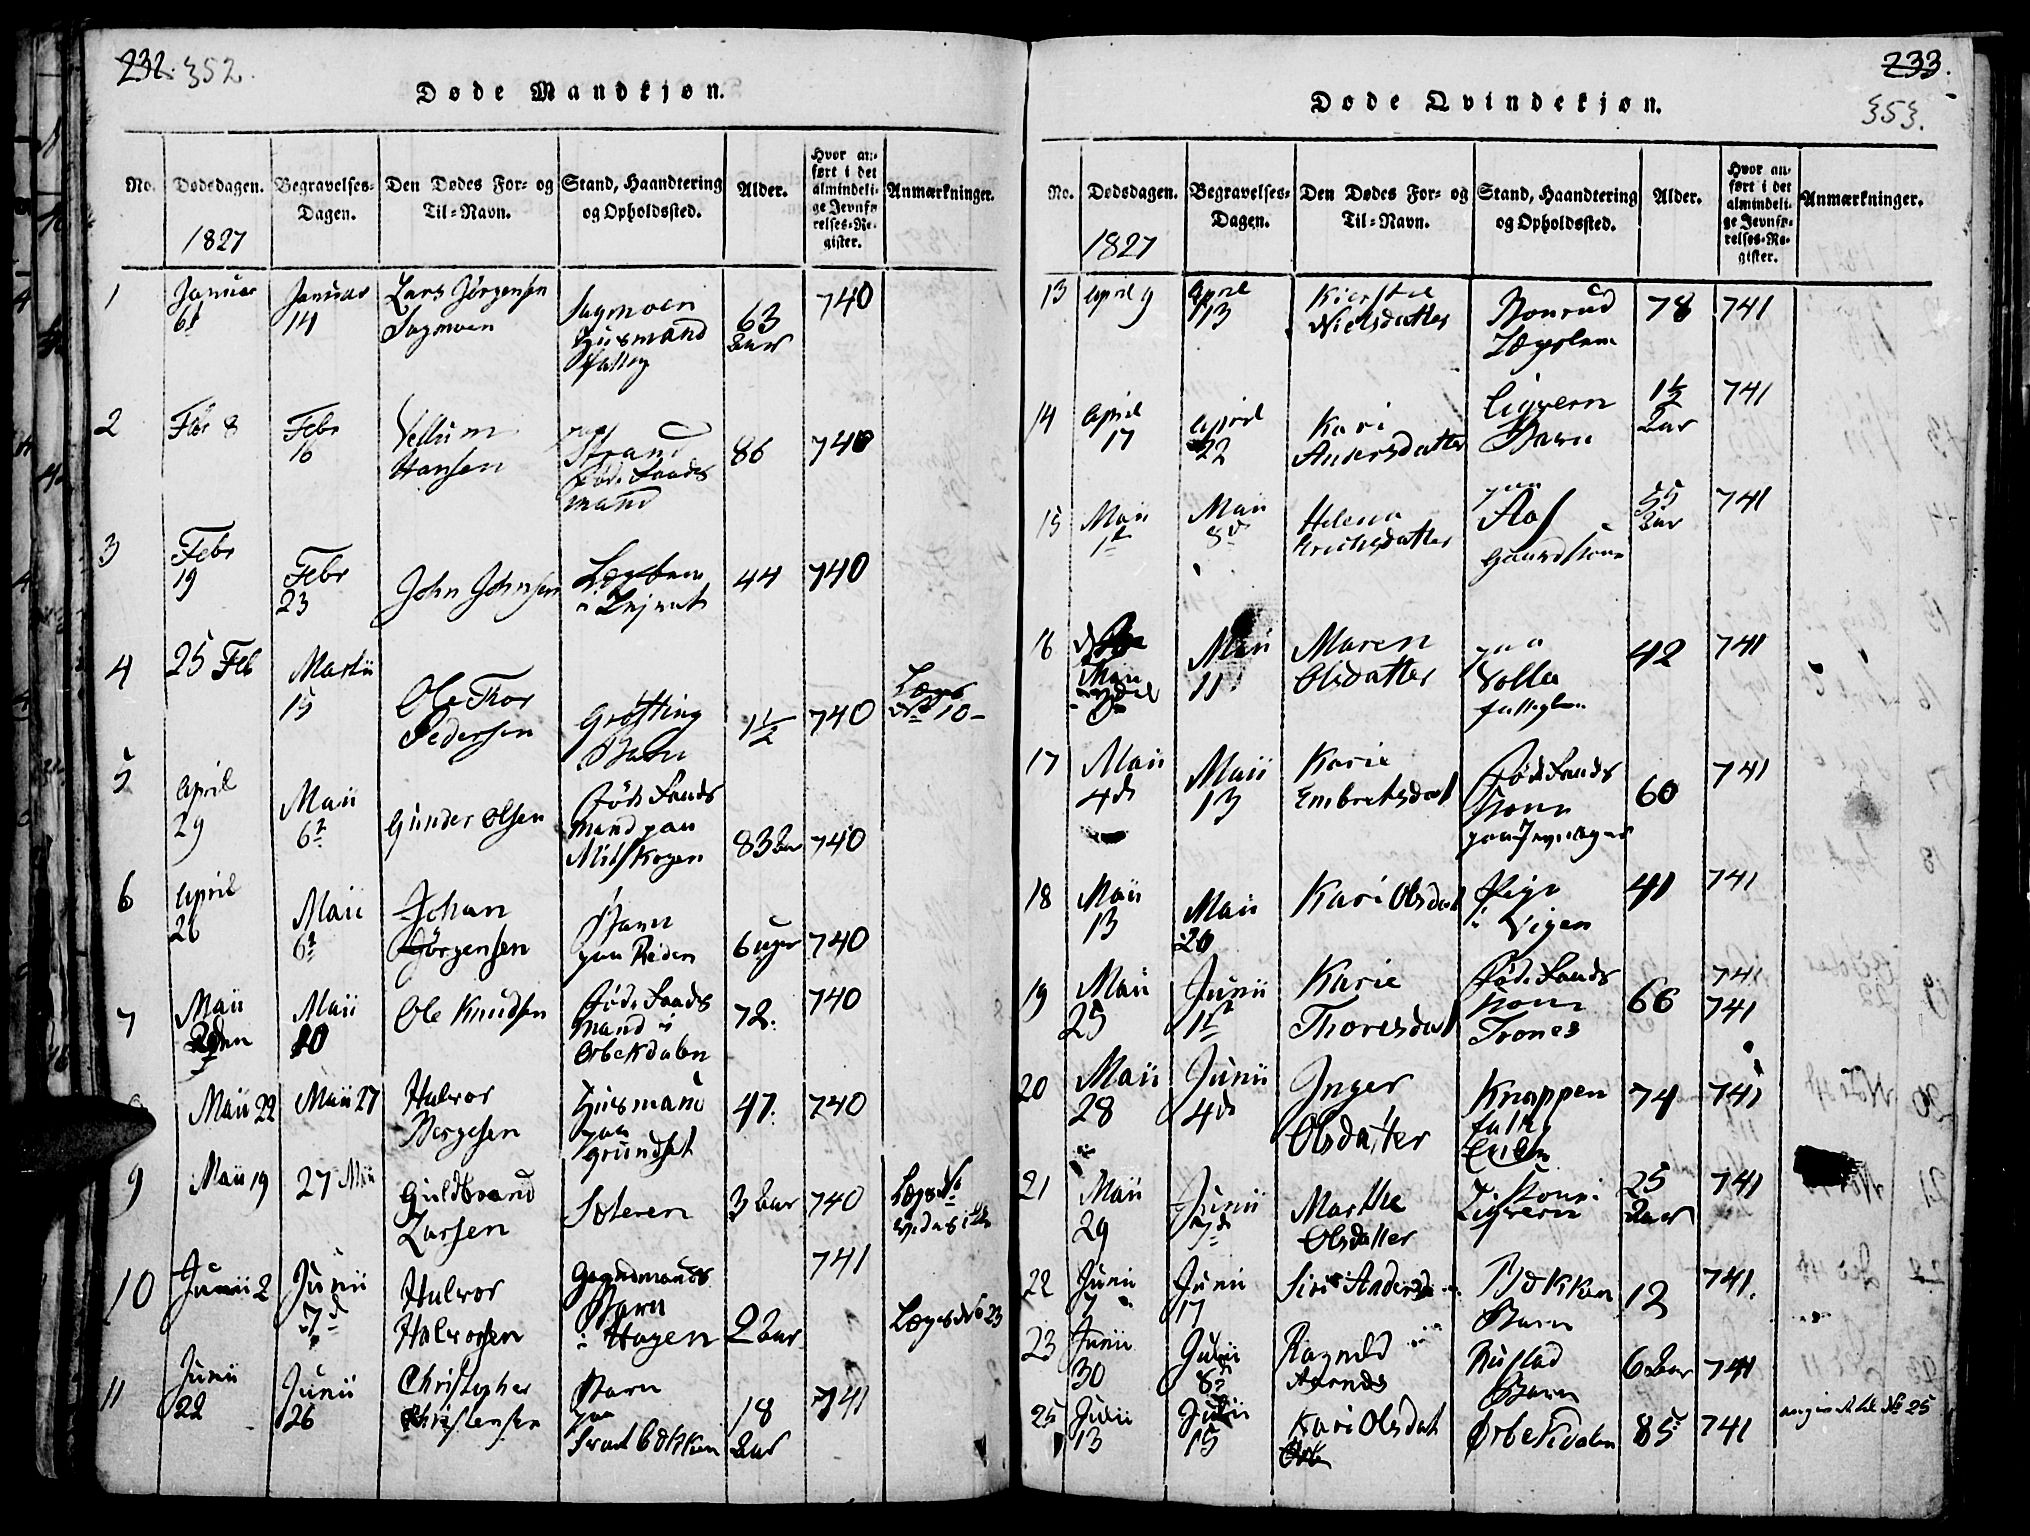 232. 352.
Døde Mandkjøn.
No. Dødsdagen. Begravelses-Dagen. Den Dødes For- og Til-Navn. Stand, Haandtering og Opholdssted. Alder. Hvor anført i det almindelige Jevnførelses-Register. Anmærkninger.
1827
1 Januar 6 Januar 14 Lars Jørgensen Sagmoen Sagmoen Huusmand 63 Aar 740
2 Febr 8 Febr 16 Hansen paa Strand Føderaads mand 86 740
3 Febr 19 Febr 23 John Johnsen 44 740
4 25 Feb Martii 15 Ole Thor Pedersen Grøtting Barn 1½ 740 Lægs No 10
5 April 29 Maii 6 Gunder Olsen Føderaads mand paa Mitskogen 83 Aar 740
6 April 26 Maii 6 Johan Jørgensen Barn paa 6 uger 740
7 Maii Maii 20 Ole Knudsen Føderaads mand i Ørbekdalen 72. 740
Maii 22 Maii 27 Halvor Børgesen Huusmand paa Grundset 47. 740
9 Maii 19 27 Maii Guldbrand Larsen Søteren 3 Aar 740 Lægs No
10 Junii 2 Junii 7 Halvor Halvorsen Barn i Hagen 2 Aar 741 Lægs No 23
11 Junii 22 Junii 26 Christopher Christensen Barn paa 18 Aar 741
233.
353.
Døde Qvindekjøn.
No. Dødsdagen. Begravelses-Dagen. Den Dødes For- og Til-Navn. Stand, Haandtering og Opholdssted. Alder. Hvor anført i det almindelige Jevnførelses-Register. Anmærkninger.
1827
13 April 9 April 13 Kierstie Nielsdatter 78 741
14 April 17 April 22 Kari Andersdatter Barn 1½ Aar 741
15 Maii 1 Maii 8 Helena Erichsdatter paa Aas 55 Aar 741
16 Maii Maii 11 Maren Olsdatter paa 42 741
17 Maii 4 Maii 13 Karie Embretsdat Føderaads Kone 60 741
18 Maii 13 Maii 20 Kari Olsdat Pige i Vigen 41 741
19 Maii 25 Junii 1 Karie Thoresdat Føderaads Kone Trones 66 741
741
20 Maii 28 Junii 4 Inger Olsdatter Knappen 74 741
21 Maii 29 Junii 7 Marthe Olsdatter 25 Aar 741
22 Junii 7 Junii 17 Siri Anders Bekken Barn 12 741.
23 Junii 30 Julii 8 Ragnild Arends Rustad Barn 6 Aar 741
25 Julii 13 Julii 15 Kari Olsdat Ørbekdalen 85 741 No 25